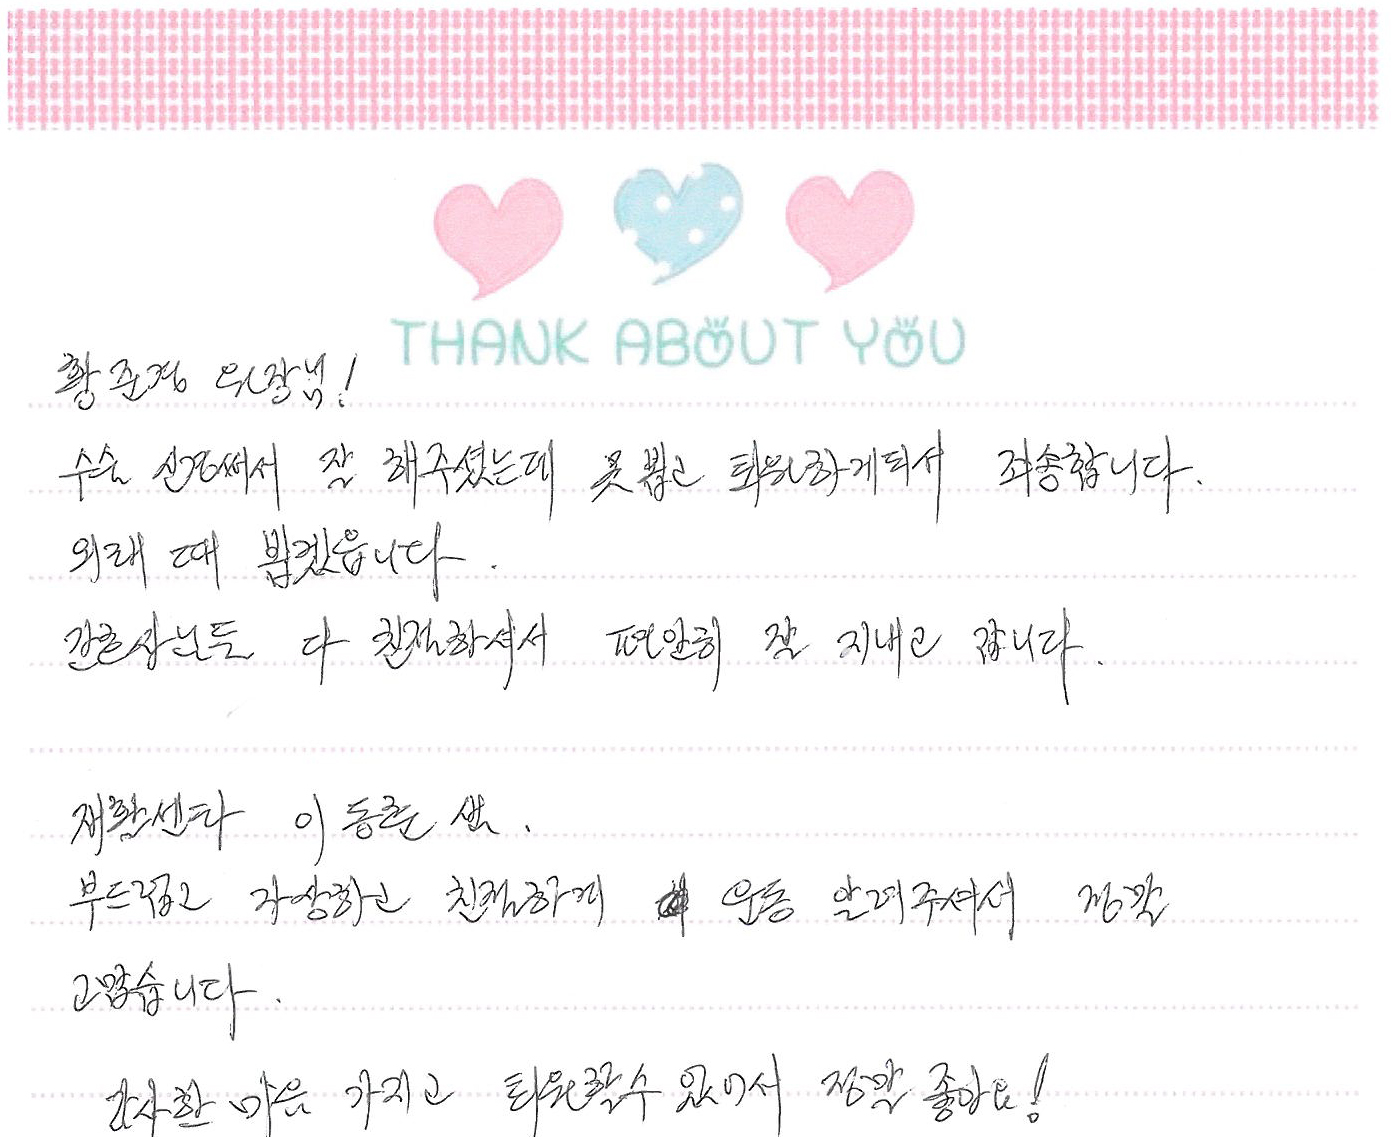 THANK ABOUT YOU
황준경 원장님!
수술 신경써서 잘 해주셨는데 못뵙고 퇴원하게되서 죄송합니다.
외래 때 뵙겠읍니다.
간호사님들 다 친절하셔서 편안히 잘 지내고 갑니다.
재활센타 이동준 샘.
부드럽고 자상하고 친절하게 운동 알려주셔서 정말
고맙습니다.
감사한 마음 가지고 퇴원할수 있어서 정말 좋아요!